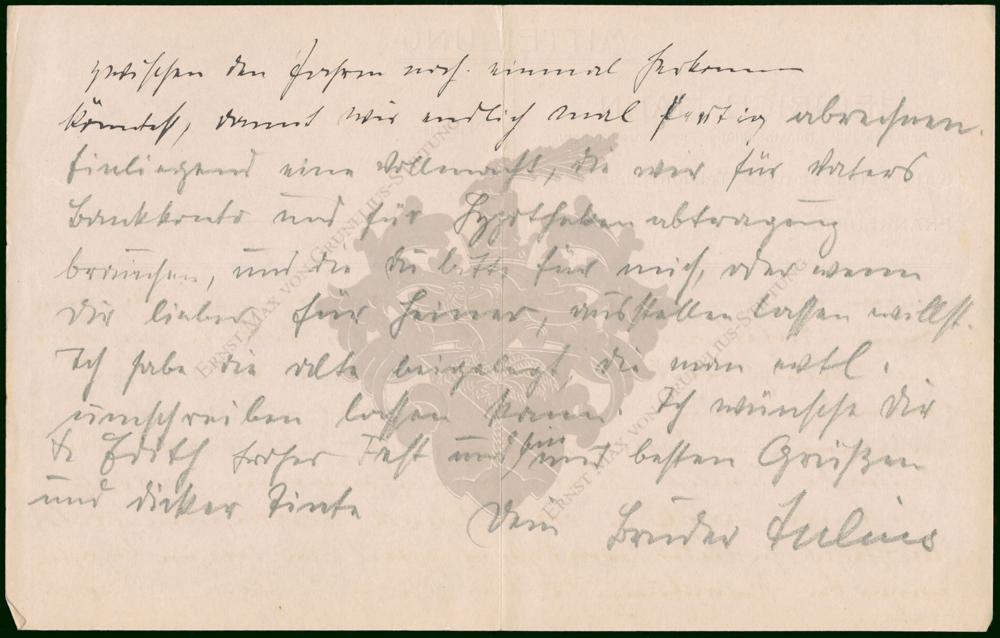 zwischen den Jahren noch einmal herkommen
könntest, damit wir endlich mal fertig abrechnen.
Einliegend eine Vollmacht, die wir für Vaters
Bankkonto und für Hypothekenabtragung
brauchen, und die Du bitte für mich, oder wenn
Dir lieber für Heiner, ausstellen lassen willst.
Ich habe die alte beigelegt, die man evtl.
umschreiben lassen kann. Ich wünsche Dir
& Edith frohes Fest und bin mit besten Grüßen
und dicker Tinte
Dein Bruder Julius
ERNST MAX VON GRUNELIUS-STIFTUNG
ERNST MAX VON GRUNELIUS-STIFTUNG